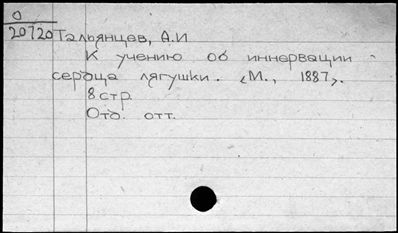 0
20720
Тальянцев, А.И
К учению об иннервации
сердца лягушки. <М., 1887>.
8 стр.
Отд. отт.